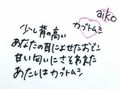 aiko
カブトムシ
少し背の高い
あなたの耳によせたおでこ
甘い匂いにさそわれた
あたしはカブトムシ